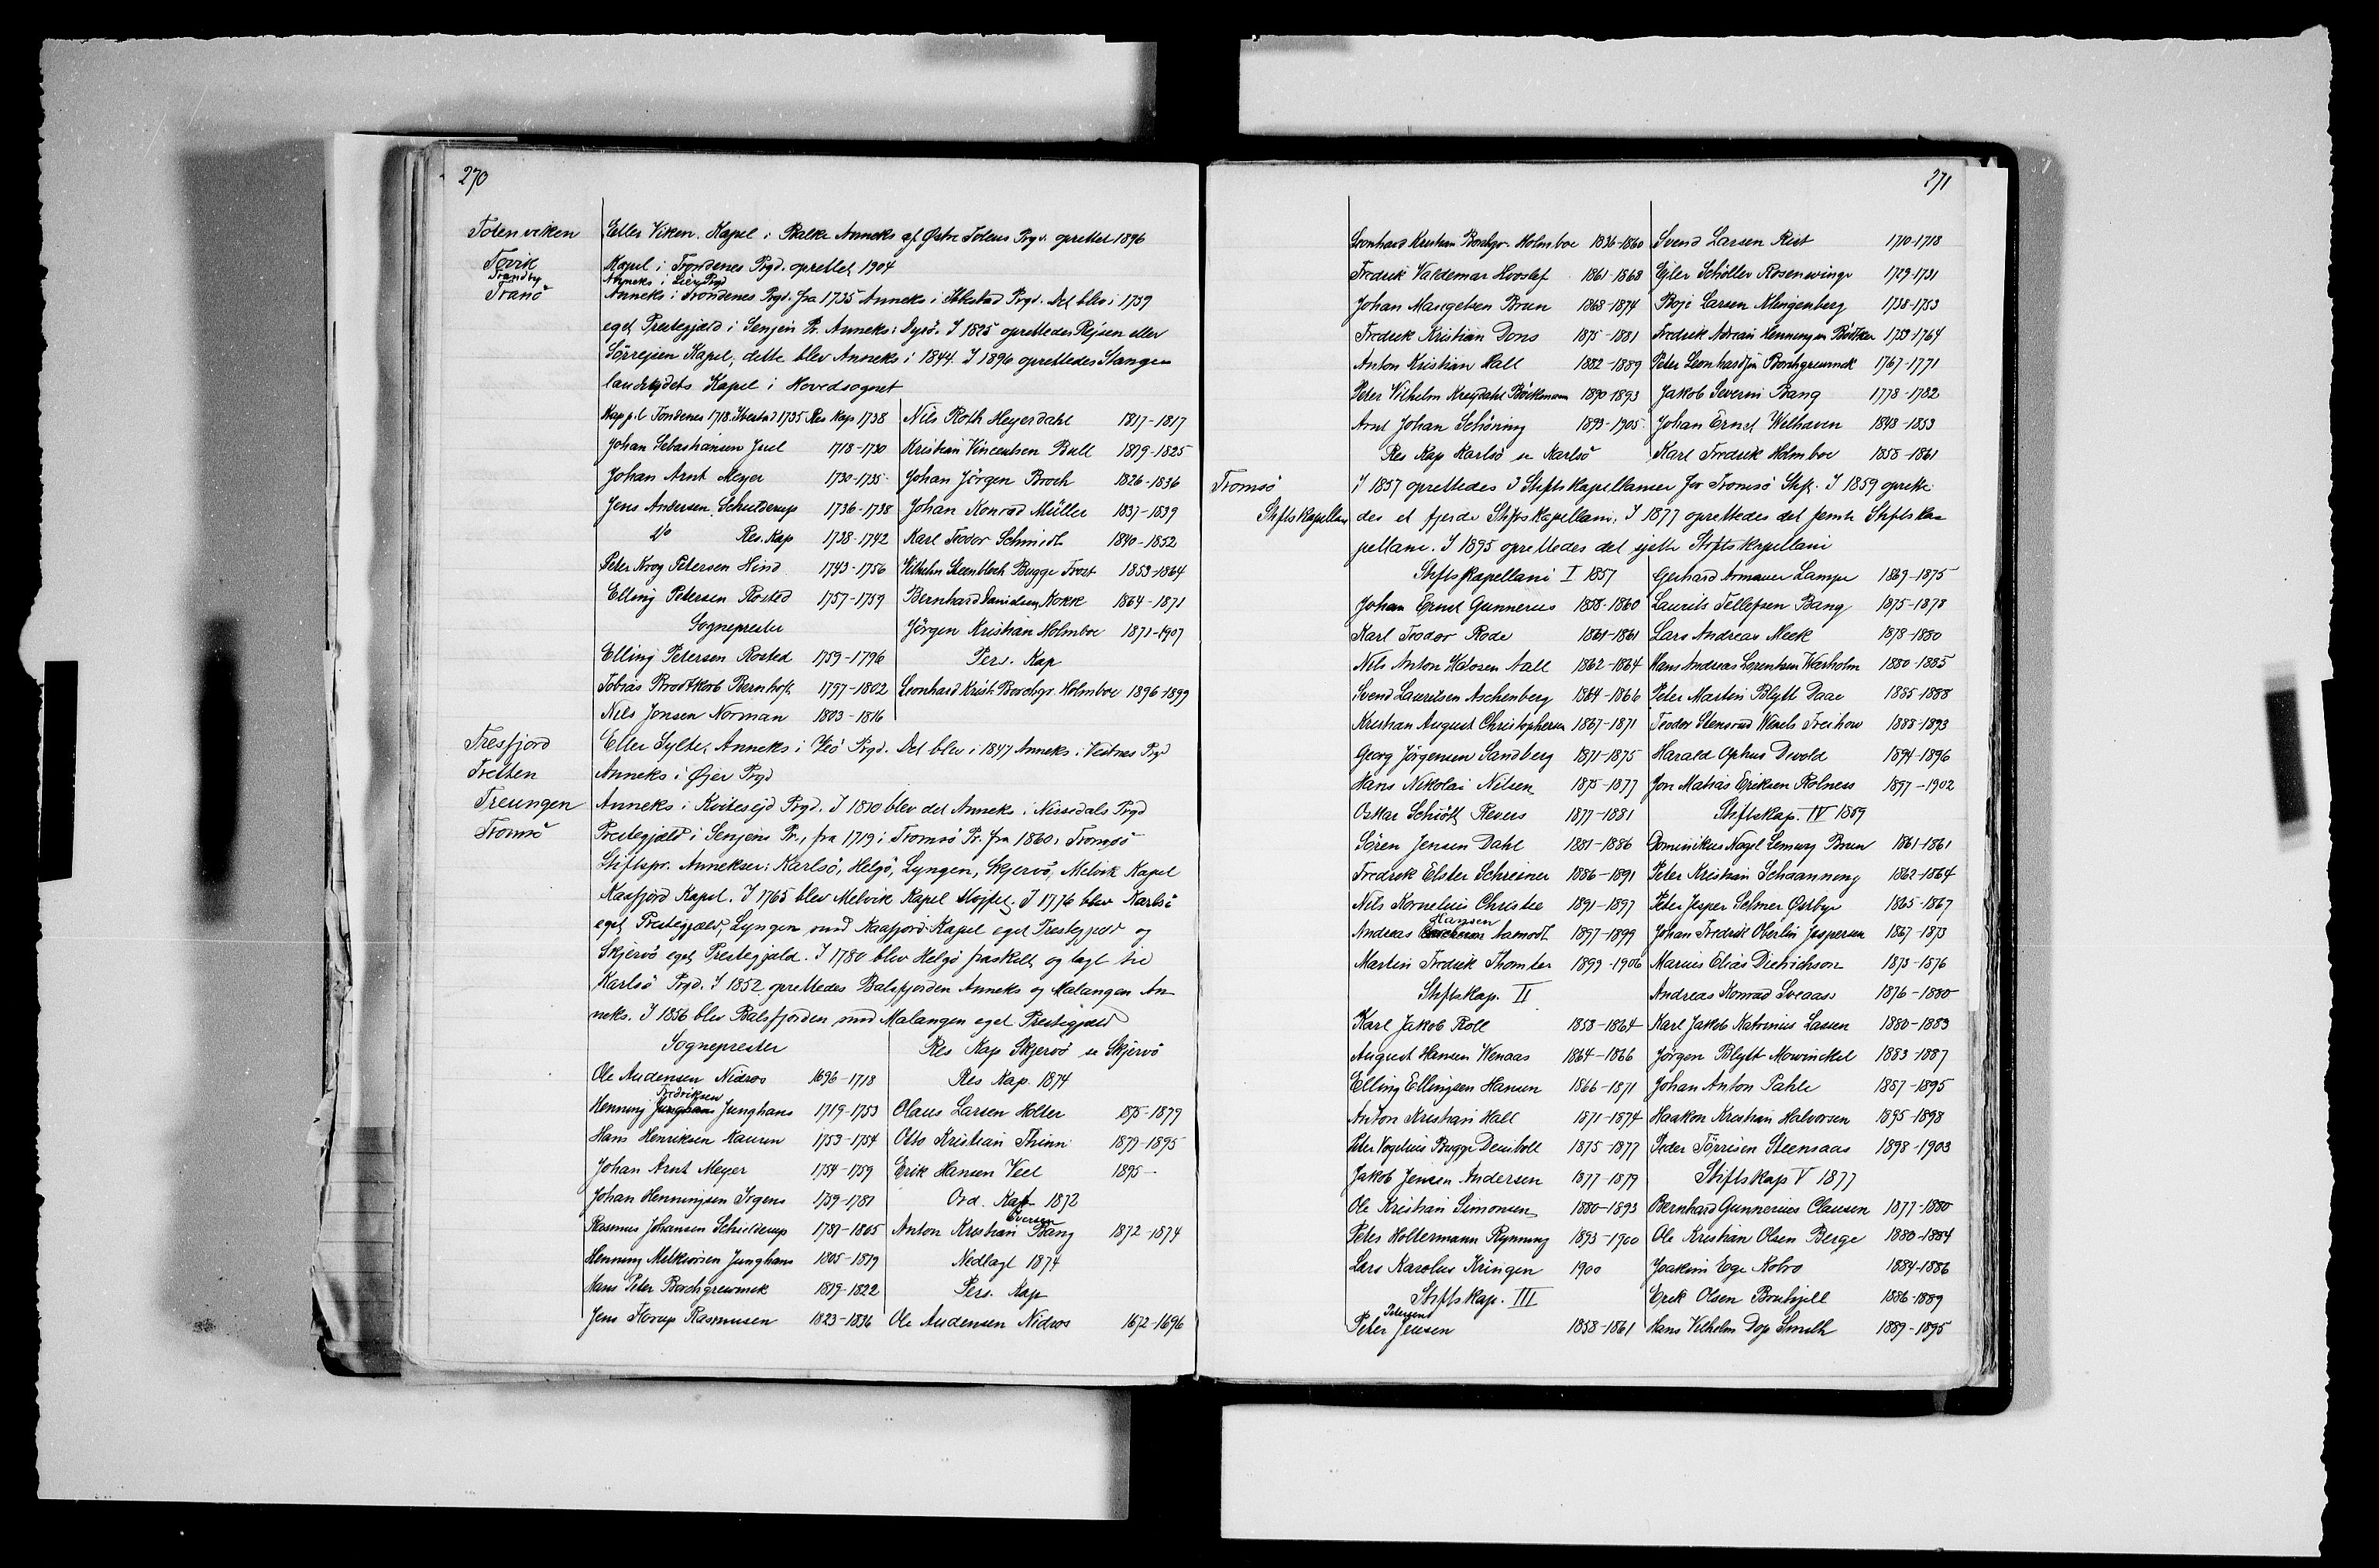 270
Totenviken Eller Viken. Kapel i Balke Anneks af Østre Totens Prgd. oprettet 1896
Tovik Kapel i Trondenes Prgd. oprettet 1904
Trandby Anneks i Lier Prgd
Tranö Anneks i Trondenes Prgd. fra 1735 Anneks i Ibbestad Prgd. Det blev i 1739
eget Prestegjæld i Senjen Pr. Anneks: Dyrö. I 1825 oprettedes Rejsen eller
Sörrejsen Kapel, dette blev Anneks i 1844. I 1896 oprettedes Stangnes
landsbygdets Kapel i Hovedsognet
Kap p.l. Tondenes 1718. Ibestad 1735 Res Kap 1738
Johan Sebastiansen Juel 1718-1730
Johan Arnt Meyer 1730-1735
Jens Andersen Schielderup 1736-1738
do Res. Kap 1738-1742
Peter Krog Petersen Hind 1743-1756
Elling Petersen Rosted 1757-1759
Sogneprester
Elling Petersen Rosted 1759-1796
Tobias Brodtkorb Bernhoft 1797-1802
Nils Jonsen Norman 1803-1816
Nils Roth Heyerdahl 1817-1817
Kristian Vincentsen Bull 1819-1825
Johan Jörgen Broch 1826-1836
Johan Konrad Müller 1837-1839
Karl Teodor Schmidt 1840-1852
Vilhelm Steenbloch Bugge Frost 1853-1864
Bernhard Davidsen Kokk 1864-1871
Jörgen Kristian Holmboe 1871-1907
Pers. Kap
Leonhard Krist. Borchgr. Holmboe 1896-1899
Tresfjord Eller Sylte, Anneks i Veö Prgd. Det blev i 1847 Anneks i Vestnes Prgd
Tretten Anneks i Øjer Prgd
Treungen Anneks i Kvitesejd Prgd. I 1810 blev det Anneks i Nissedals Prgd
Tromsö Prestegjæld i Senjens Pr., fra 1719 i Tromsö Pr. fra 1860 i Tromsö
Stiftspr. Annekser: Karlsö, Helgö, Lyngen, Skjervö, Melvik Kapel
Kaafjord Kapel. I 1765 blev Melvik Kapel sløjfet. I 1776 blev Karlsö
eget Prestegjæld, Lyngen med Kaafjord Kapel eget Prestegjæld og
Skjervö eget Prestegjæld. I 1780 blev Helgö fraskilt og lagt til
Karlsö Prgd. I 1852 oprettedes Balsfjorden Anneks og Malangen An-
neks. I 1856 blev Balsfjorden med Malangen eget Prestegjæld
Sogneprester
Ole Audensen Nidros 1696-1718
Fredriksen
Henning Junghans Junghans 1719-1753
Hans Henriksen Kauren 1753-1754
Johan Arnt Meyer 1754-1759
Johan Henningsen Irgens 1759-1781
Rasmus Johansen Schielderup 1781-1805
Henning Melkiorsen Junghans 1805-1819
Hans Peter Borchgrewinck 1819-1822
Jens Horup Rasmusen 1823-1836
Res Kap Skjervö se Skjervö
Res Kap. 1874
Olaus Larsen Holter 1875-1879
Otto Kristian Thinn 1879-1895
Erik Hansen Veel 1895-
Ord. Kap 1872
Iversen
Anton Kristian Bang 1872-1874
Nedlagt 1874
Pers. Kap
Ole Audensen Nidros 1672-1696
271
Leonhard Kristian Borchgr. Holmboe 1836-1860
Fredrik Valdemar Hvoslef 1861-1868
Johan Mangelsen Brun 1868-1874
Fredrik Kristian Dons 1875-1881
Anton Kristian Hall 1882-1889
Peter Vilhelm Kreydahl Böckmann 1890-1893
Arnt Johan Schöning 1893-1905
Res Kap Karlsö se Karlsö
Svend Larsen Rist 1710-1718
Ejler Schöller Rosenvinge 1729-1731
Boje Larsen Klingenberg 1738-1753
Fredrik Adrian Henningsen Bödtker 1753-1764
Peter Leonhardsen Borchgrewinck 1767-1771
Jakob Severin Bang 1778-1782
Johan Ernst Welhaven 1848-1853
Karl Fredrik Holmboe 1858-1861
Tromsö I 1857 oprettedes 3 Stiftskapellanier for Tromsö Stift. I 1859 oprette-
Stiftskapellani des et fjerde Stiftskapellani, I 1877 oprettedes det femte Stiftska-
pellani. I 1895 oprettedes det sjette Stiftskapellani
Stiftskapellani I 1857
Johan Ernst Gunnerus 1858-1860
Karl Teodor Rode 1861-1861
Nils Anton Aall 1862-1864
Svend Lauritsen Aschenberg 1864-1866
Kristian August Christophersen 1867-1871
Georg Jörgensen Sandberg 1871-1875
Hans Nikolai Nilsen 1875-1877
Oskar Schiött Revers 1877-1881
Sören Jensen Dahl 1881-1886
Fredrik Elster Schreiner 1886-1891
Nils Kornelius Christie 1891-1897
Hansen
Andreas Aamodt 1897-1899
Martin Fredrik Thomter 1899-1906
Stiftskap. II
Karl Jakob Roll 1858-1864
August Hansen Wenaas 1864-1866
Elling Ellingsen Hansen 1866-1871
Anton Kristian Hall 1871-1874
Peter Vogelius Bugge Deinboll 1875-1877
Jakob Jensen Andersen 1877-1879
Ole Kristian Simonsen 1880-1893
Peter Holtermann Rynning 1893-1900
Lars Karolus Kringen 1900
Stiftskap. III
Petersens
Peter Jensen 1858-1861
Gerhard Armauer Lampe 1869-1875
Laurits Tellefsen Bang 1875-1878
Lars Andreas Meek 1878-1880
Hans Andreas Lorentsen Warholm 1880-1885
Peter Martin Blytt Daae 1885-1888
Teodor Stensrud Wenls Treihow 1888-1893
Harald Ophus Devold 1894-1896
Jon Matias Eriksen Rolness 1897-1902
Stiftskap. IV 1859
Dominikus Nagel Lemvig Brun 1861-1861
Peter Kristian Schaanning 1862-1864
Peter Jesper Selmer Østbye 1865-1867
Johan Fredrik Oberlin Jespersen 1867-1873
Marius Elias Dietrichson 1873-1876
Andreas Konrad Sveaass 1876-1880
Karl Jakob Katrinius Lassen 1880-1883
Jörgen Blytt Mowinckel 1883-1887
Johan Anton Pahle 1887-1895
Haakon Kristian Halvorsen 1895-1898
Peder Törrisen Steensaas 1898-1903
Stiftskap V 1877
Bernhard Gunnerius Clausen 1877-1880
Ole Kristian Olsen Berge 1880-1884
Joakim Eoge Kolvo 1884-1886
Erik Olsen Bouhjell 1886-1889
Hans Vilhelm Dop Smith 1889-1895